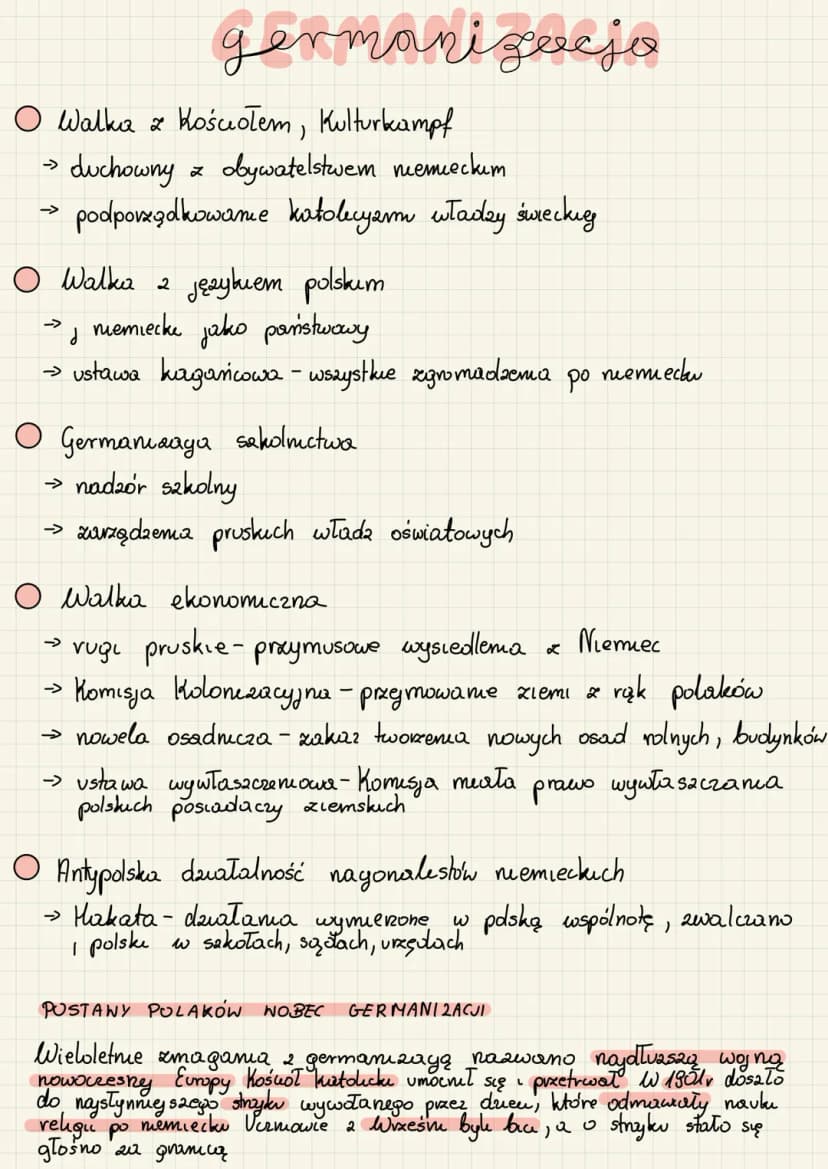 GERMANIZACJA
germanizacja
Walka z Kościołem, Kulturkampf
→ duchowny z obywatelstwem niemieckim
→ podporządkowanie katolicyzmu władzy świeckiej
Walka z językiem polskim
→ j niemiecki jako państwowy
→ ustawa kagańcowa - wszystkie zgromadzenia po niemiecku
Germanizacja szkolnictwa
→ nadzór szkolny
→ zarządzenia pruskich władz oświatowych
Walka ekonomiczna
→ rugi pruskie - przymusowe wysiedlenia z Niemiec
→ Komisja Kolonizacyjna - przejmowanie ziemi z rąk polaków
→ nowela osadnicza - zakaz tworzenia nowych osad rolnych, budynków
→ ustawa wywłaszczeniowa - Komisja miała prawo wywłaszczania
polskich posiadaczy ziemskich
Antypolska działalność nacjonalistów niemieckich
→ Hakata - działania wymierzone w polską wspólnotę, zwalczano
j polski w szkołach, sądach, urzędach
POSTAWY POLAKÓW WOBEC GERMANIZACJI
Wieloletnie zmagania z germanizacją nazwano najdłuższą wojną
nowoczesnej Europy Kościół katolicki umocnił się i przetrwał W 1901r doszło
do najsłynniejszego strajku wywołanego przez dzieci, które odmawiały nauki
religii po niemiecku Uczniowie z Wrześni byli bici, a o strajku stało się
głośno za granicą